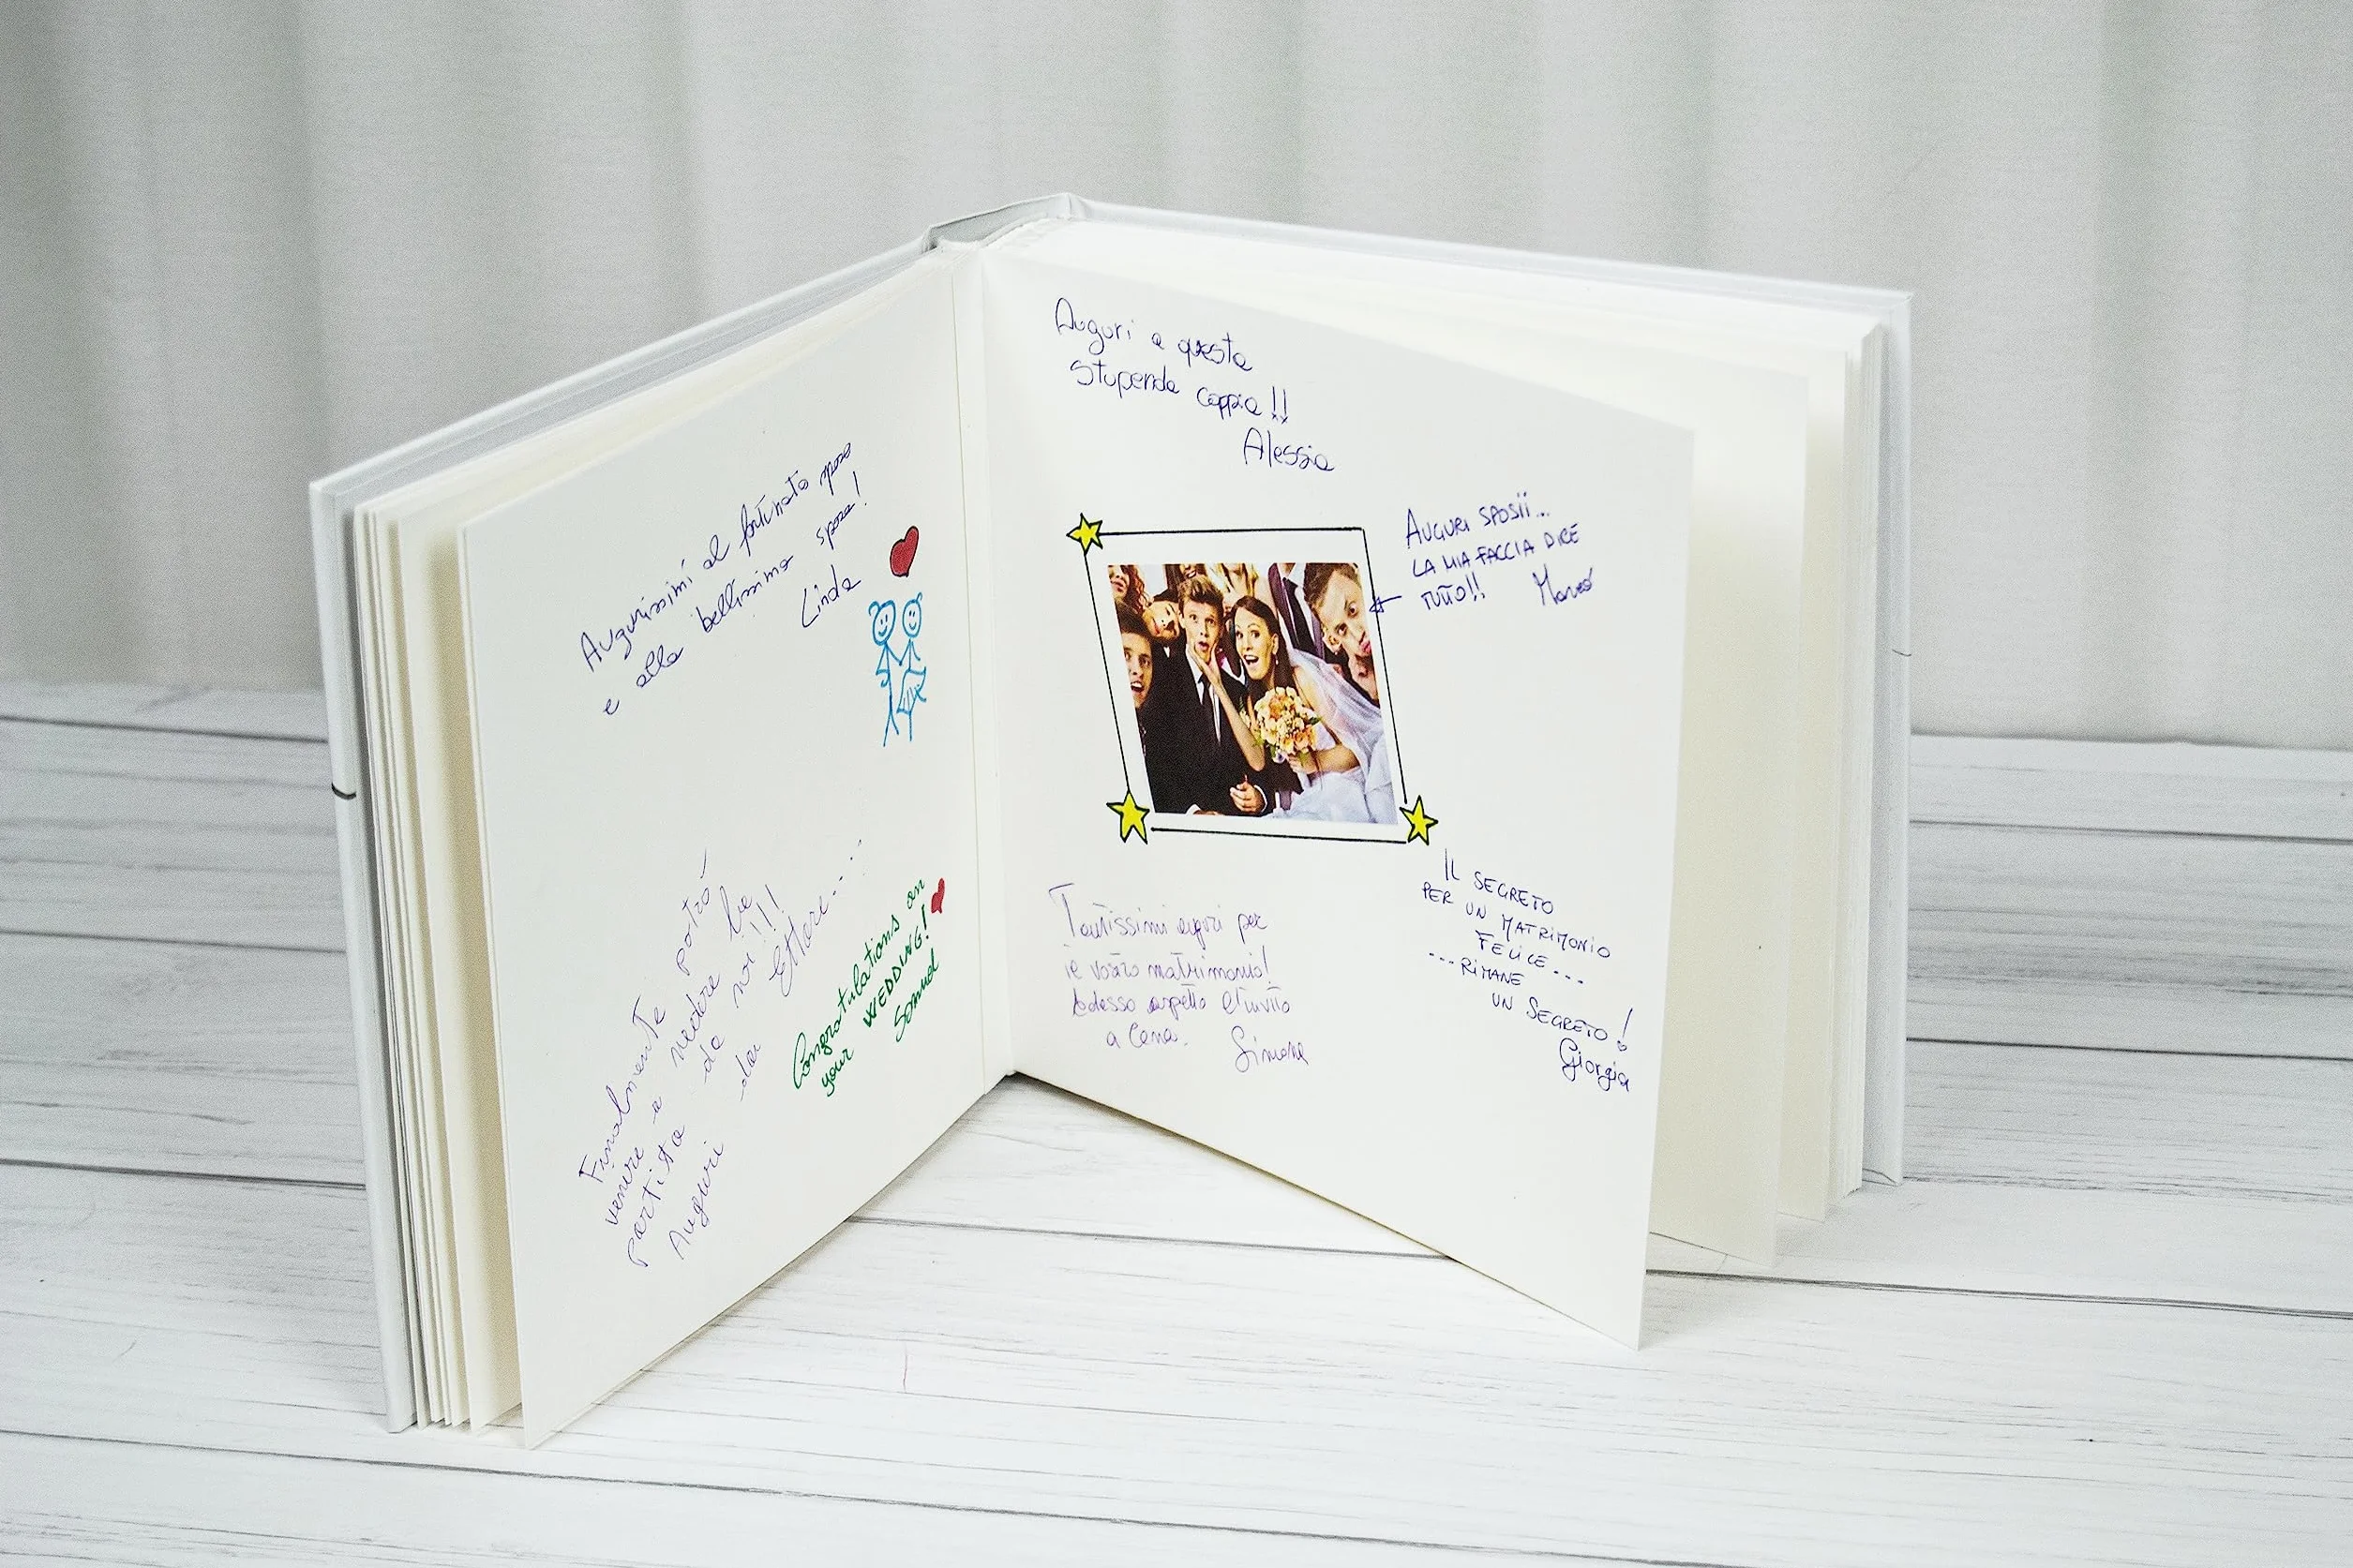 Augurissimi al fortunato sposo
e alla bellissima sposa!
Linda
Finalmente potrò
venire a vedere la
partita da noi!!!
Auguri da Ettore....
Congratulations on
your WEDDING!
Samuel
Auguri a questa
stupenda coppia!!
Alessia
AUGURI SPOSII...
LA MIA FACCIA DICE
TUTTO!!
Tantissimi auguri per
il vostro matrimonio!
Adesso aspetto l'invito
a cena.
Simone
IL SEGRETO
PER UN MATRIMONIO
FELICE...
...RIMANE
UN SEGRETO!
Giorgia